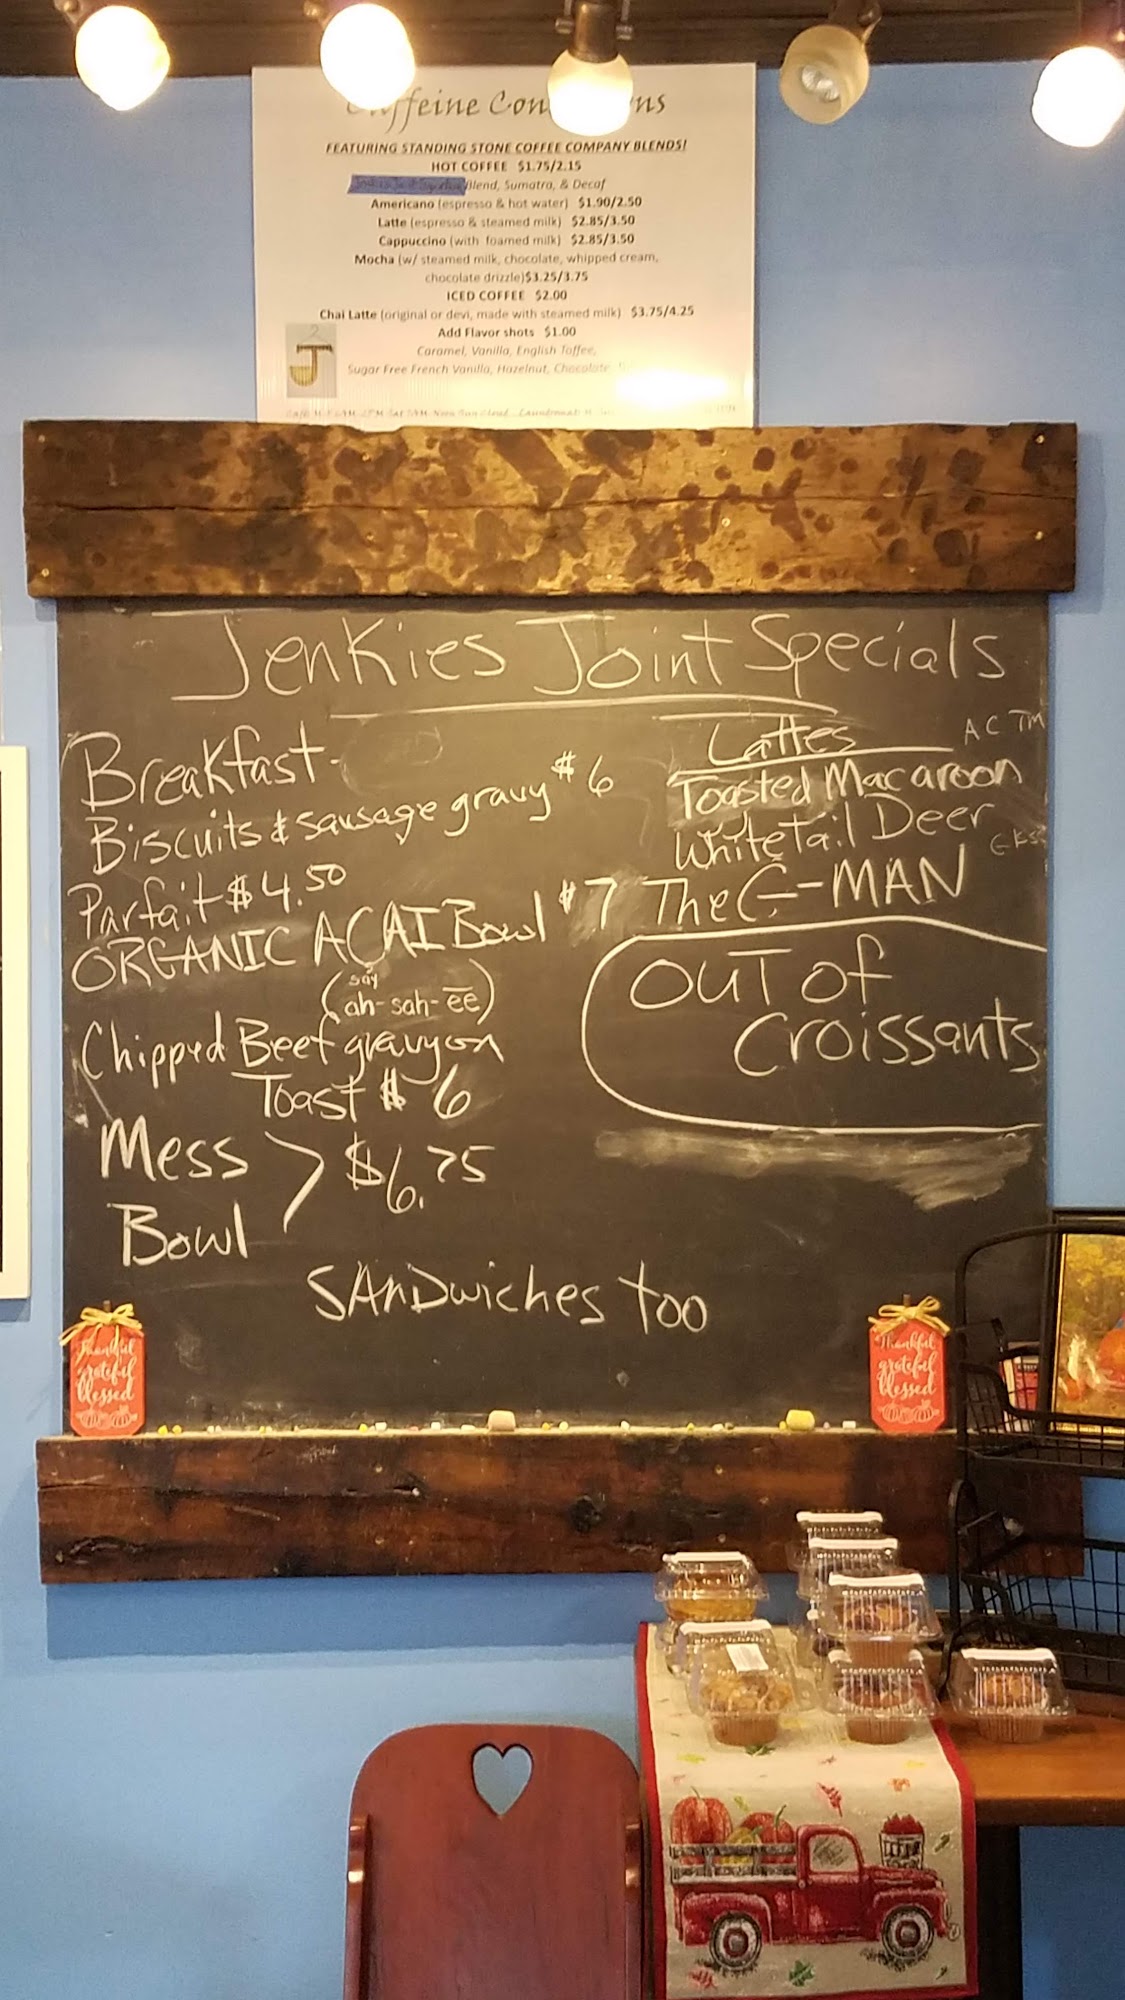 FEATURING STANDING STONE COFFEE COMPANY BLENDS!
HOT COFFEE $1.75/2.15
Blend, Sumatra, & Decaf
Americano (espresso & hot water) $1.90/2.50
Latte (espresso & steamed milk) $2.85/3.50
Cappuccino (with foamed milk) $2.85/3.50
Mocha (w/ steamed milk, chocolate, whipped cream,
chocolate drizzle)$3.25/3.75
ICED COFFEE $2.00
Chai Latte (original or devi, made with steamed milk) $3.75/4.25
Add Flavor shots $1.00
Caramel, Vanilla, English Toffee,
Sugar Free French Vanilla, Hazelnut, Chocolate
J
Jenkies Joint Specials
Breakfast-
Biscuits & sausage gravy $6
Parfait $4.50
ORGANIC ACAI Bowl $7
(say
ah-sah-ee)
Chipped Beef gravy on
Toast $6
Mess > $6.75
Bowl
Lattes
AC TM
Toasted Macaroon
Whitetail Deer
The G-MAN
OUT OF
Croissants
SANDwiches too
Thankful
grateful
blessed
Thankful
grateful
blessed